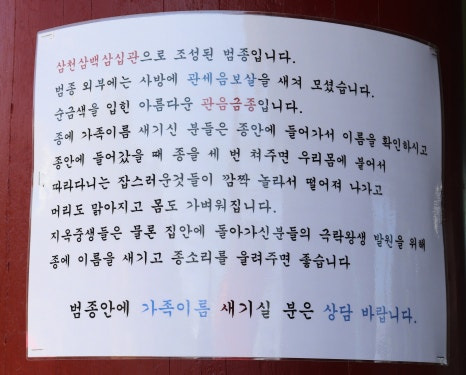 삼천삼백삼십관으로 조성된 범종입니다.
범종 외부에는 사방에 관세음보살을 새겨 모셨습니다.
순금색을 입힌 아름다운 관음금종입니다.
종에 가족이름 새기신 분들은 종안에 들어가서 이름을 확인하시고
종안에 들어갔을 때 종을 세 번 쳐주면 우리몸에 붙어서
따라다니는 잡스러운것들이 깜짝 놀라서 떨어져 나가고
머리도 맑아지고 몸도 가벼워집니다.
지옥중생들은 물론 집안에 돌아가신분들의 극락왕생 발원을 위해
종에 이름을 새기고 종소리를 울려주면 좋습니다
범종안에 가족이름 새기실 분은 상담 바랍니다.